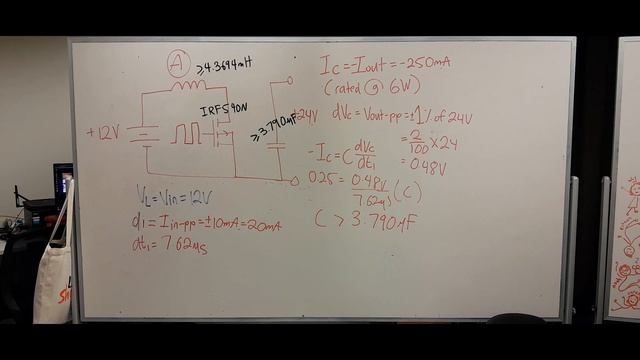 A
≥4.3694mH
IRF540N
≥3.790μF
+24V
+12V
VL=Vin=12V
di=Iin-pp=±10mA=20mA
dt1=7.62μs
Ic=-Iout=-250mA
(rated @ 6W)
dVc=Vout-pp=±1% of 24V
=2/100×24
=0.48V
-Ic=C dVc/dt1
0.25=0.48V/7.62μs (C)
C > 3.790μF